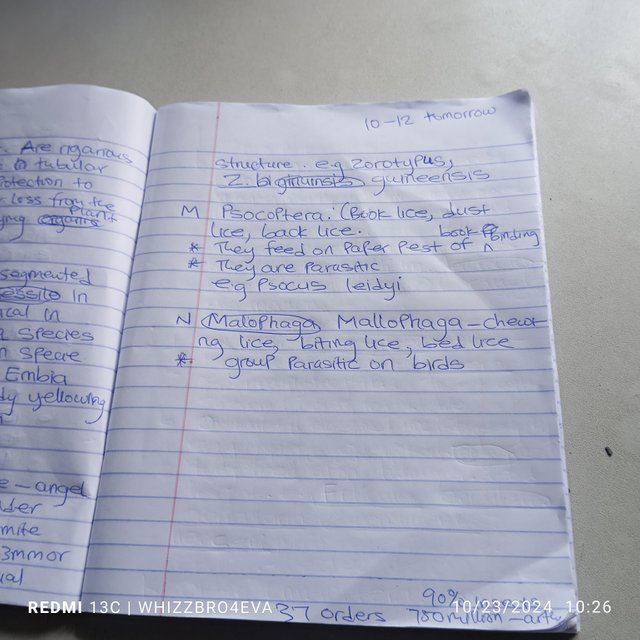 . Are nganous
tubular
otection to
less from the
ying organis plant
segmented
essile in
ical in
species
n specie
Embia
dy yellowing
e - angel
der
mite
3mmor
ual
10-12 tomorrow
structure. e.g Zorotypus,
Z. biginuinsis guineensis
M Psocoptera: (Book lice, dust
lice, back lice.
* They feed on Paper Pest of book binding
* They are Parasitic
e.g Psocus leidyi
N Malophaga Mallophaga - chewi
ng lice, biting lice, bed lice
* group Parasitic on birds
37 orders
90%
780 million - arth
REDMI 13C | WHIZZBRO4EVA
10/23/2024 10:26